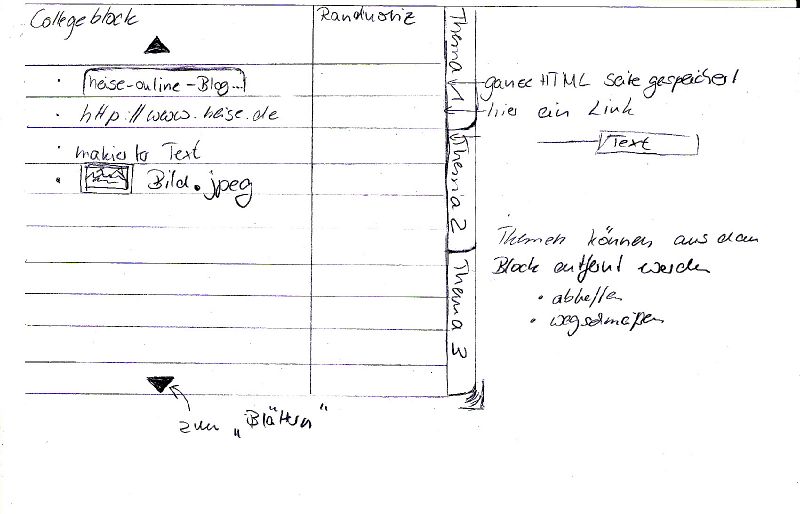 Collegeblock
Randnotiz
heise-online-Blog...
http://www.heise.de
makierter Text
Bild.jpeg
Thema 1
Thema 2
Thema 3
ganze HTML Seite gespeichert
hier ein Link
Text
Themen können aus dem
Block entfernt werden
• abheften
• wegschmeißen
zum „Blättern"